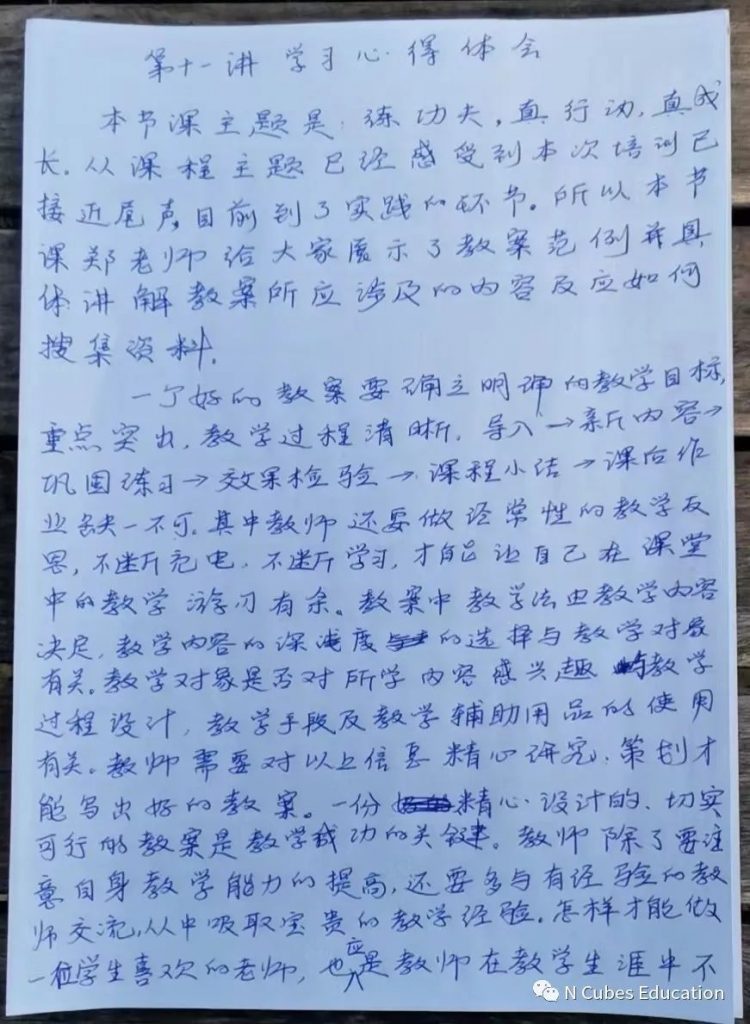 第十一讲 学习心得体会
本节课主题是：练功夫，真行动，真成
长。从课程主题已经感受到本次培训已
接近尾声，目前到了实践的环节。所以本节
课郑老师给大家展示了教案范例并具
体讲解教案所应涉及的内容及应如何
搜集资料。
一个好的教案要确立明确的教学目标，
重点突出，教学过程清晰，导入→新内容→
巩固练习→效果检验→课程小结→课后作
业缺一不可。其中教师还要做经常性的教学反
思，不断充电，不断学习，才能让自己在课堂
中的教学游刃有余。教案中教学法由教学内容
决定，教学内容的深浅度的选择与教学对象
有关。教学对象是否对所学内容感兴趣与教学
过程设计，教学手段及教学辅助用品的使用
有关。教师需要对以上信息精心研究，策划才
能写出好的教案。一份精心设计的、切实
可行的教案是教学成功的关键。教师除了要注
意自身教学能力的提高，还要多与有经验的教
师交流，从中吸取宝贵的教学经验。怎样才能做
一位学生喜欢的老师，也应是教师在教学生涯中不
N Cubes Education